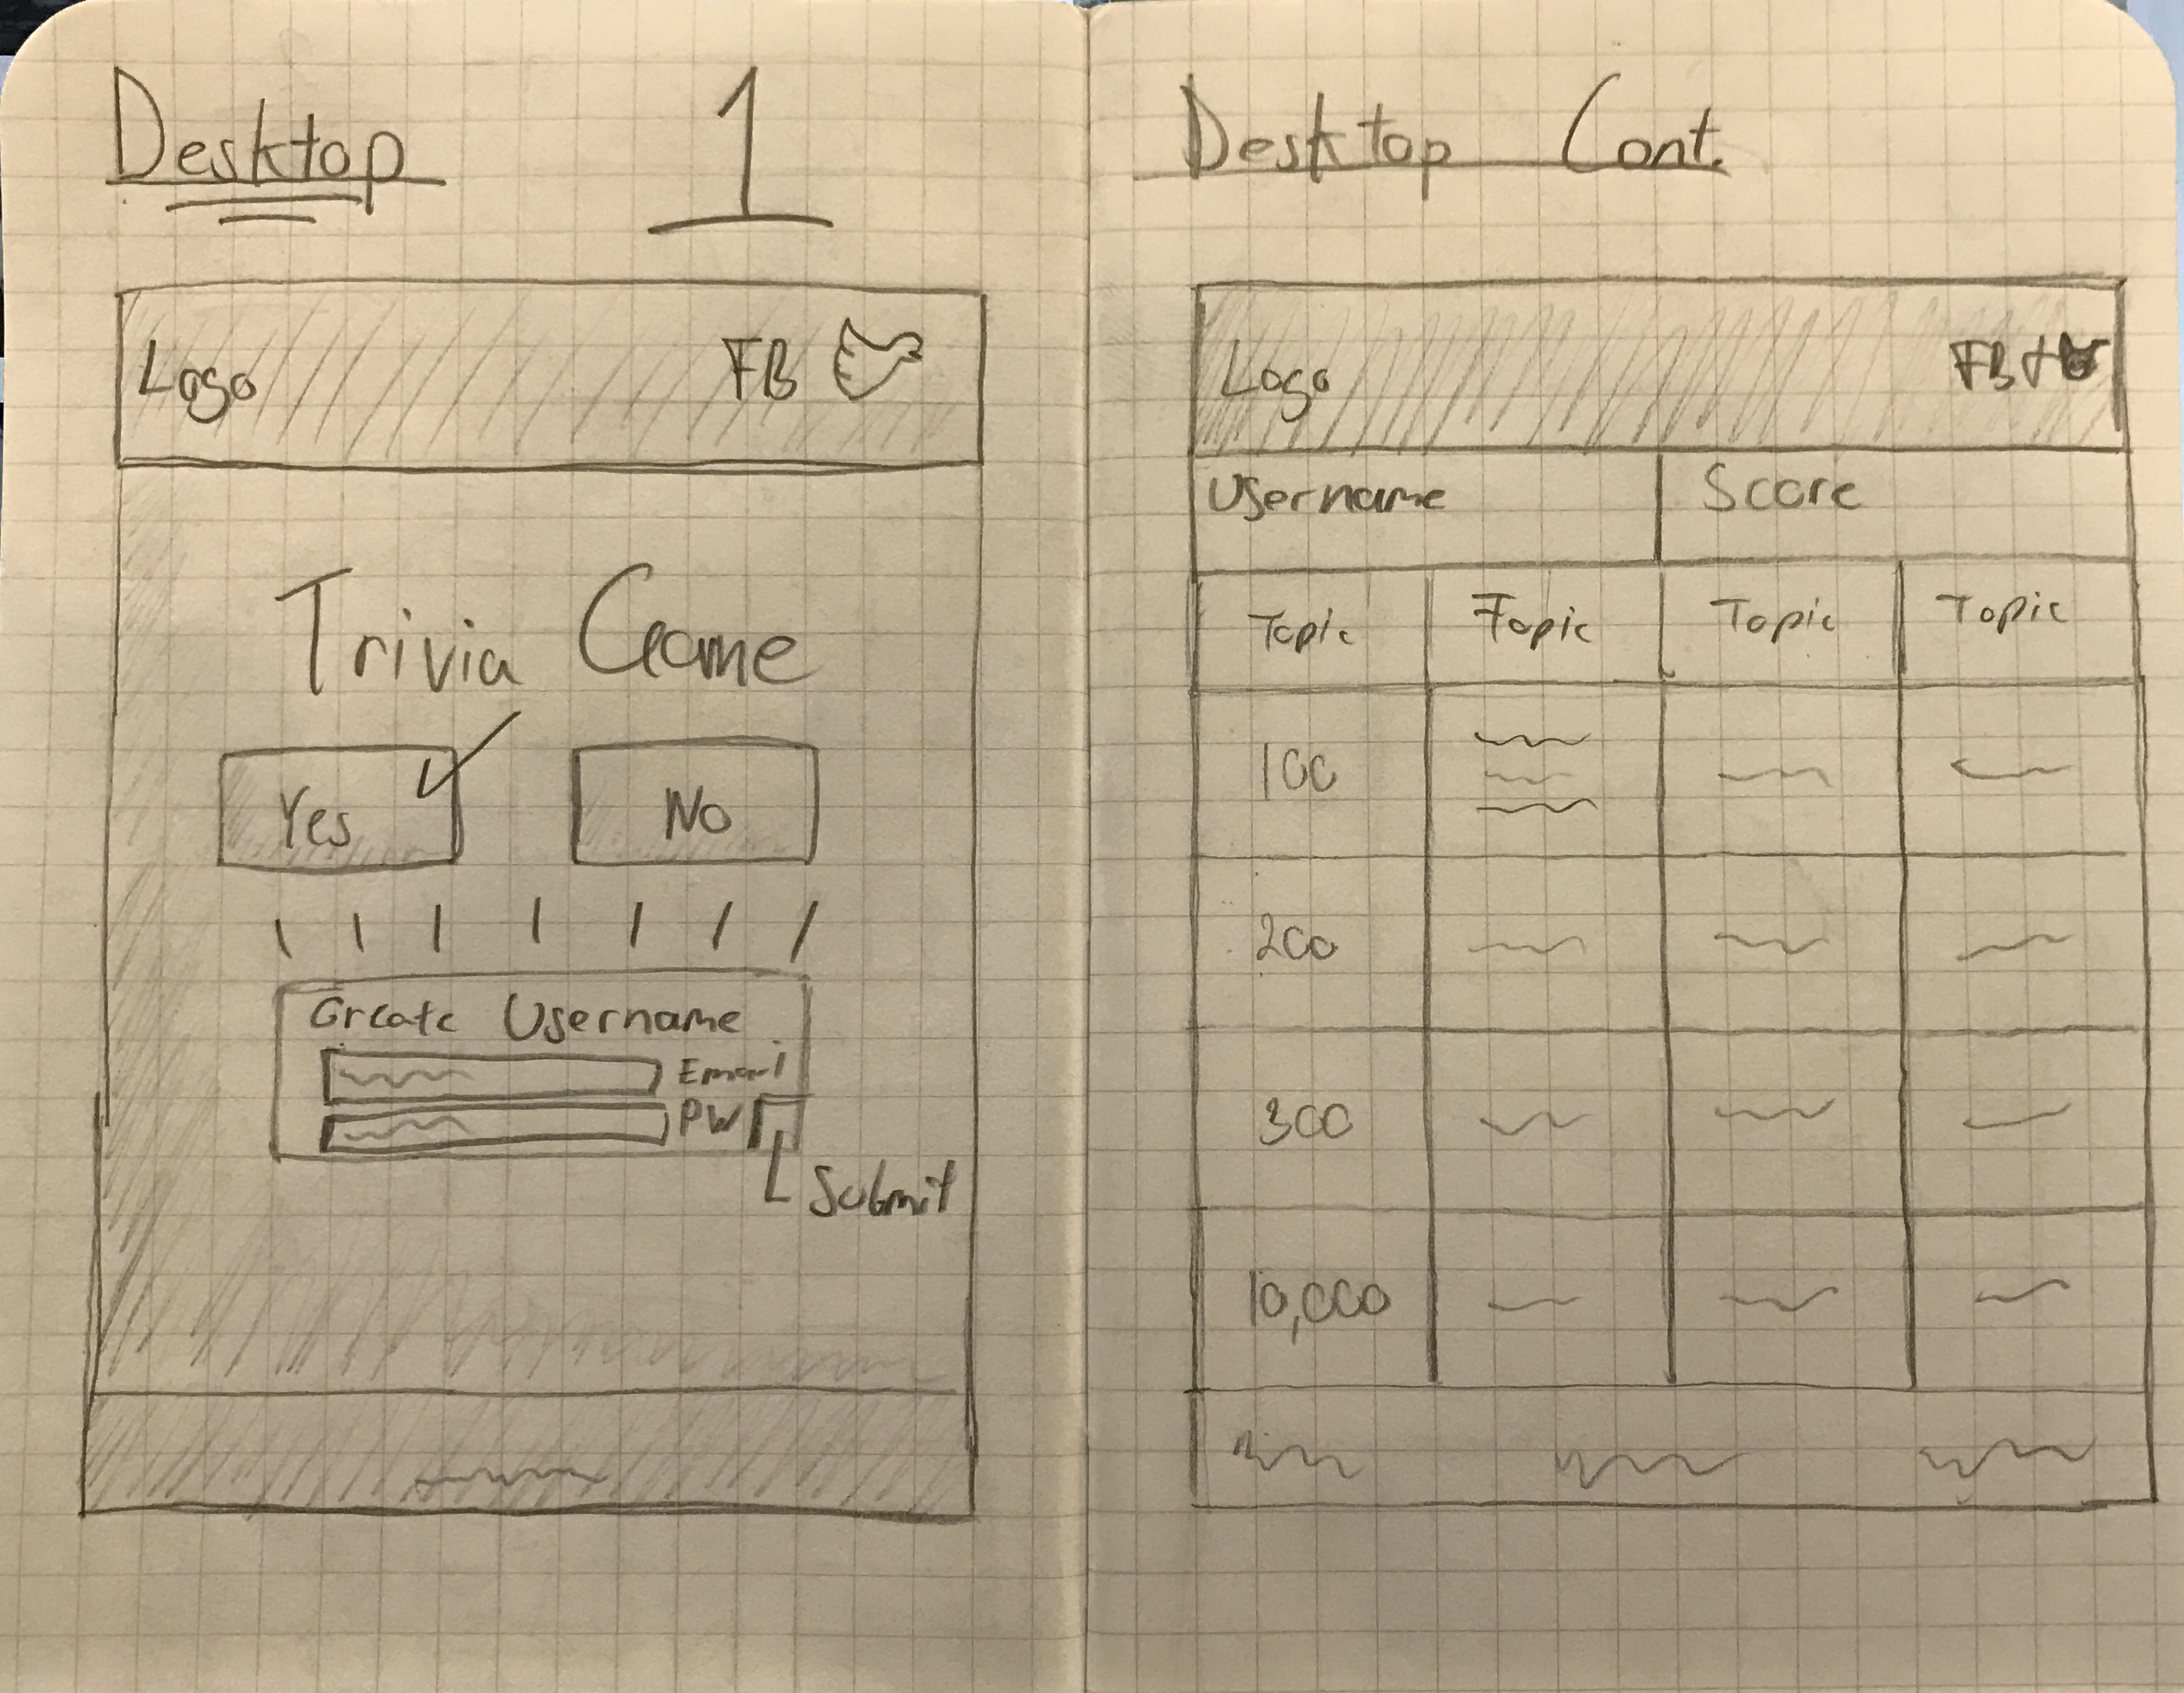 Desktop 1
Logo FB
Trivia Game
Yes No
Create Username
Email
PW
Submit
Desktop Cont.
Logo FB +
Username Score
Topic Topic Topic Topic
100
200
300
10,000